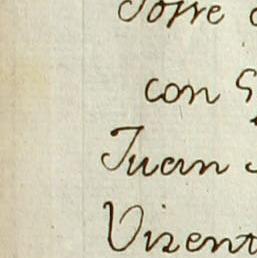 Torre
con
Juan
Vizent